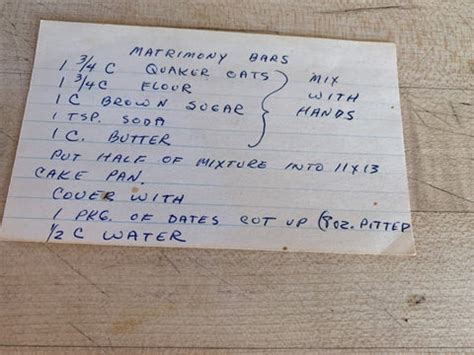 MATRIMONY BARS
1 3/4 C QUAKER OATS } MIX
1 3/4 C FLOUR WITH
1 C BROWN SUGAR HANDS
1 TSP. SODA
1 C. BUTTER
PUT HALF OF MIXTURE INTO 11X13
CAKE PAN.
COVER WITH
1 PKG. OF DATES CUT UP (8 OZ. PITTED
1/2 C WATER